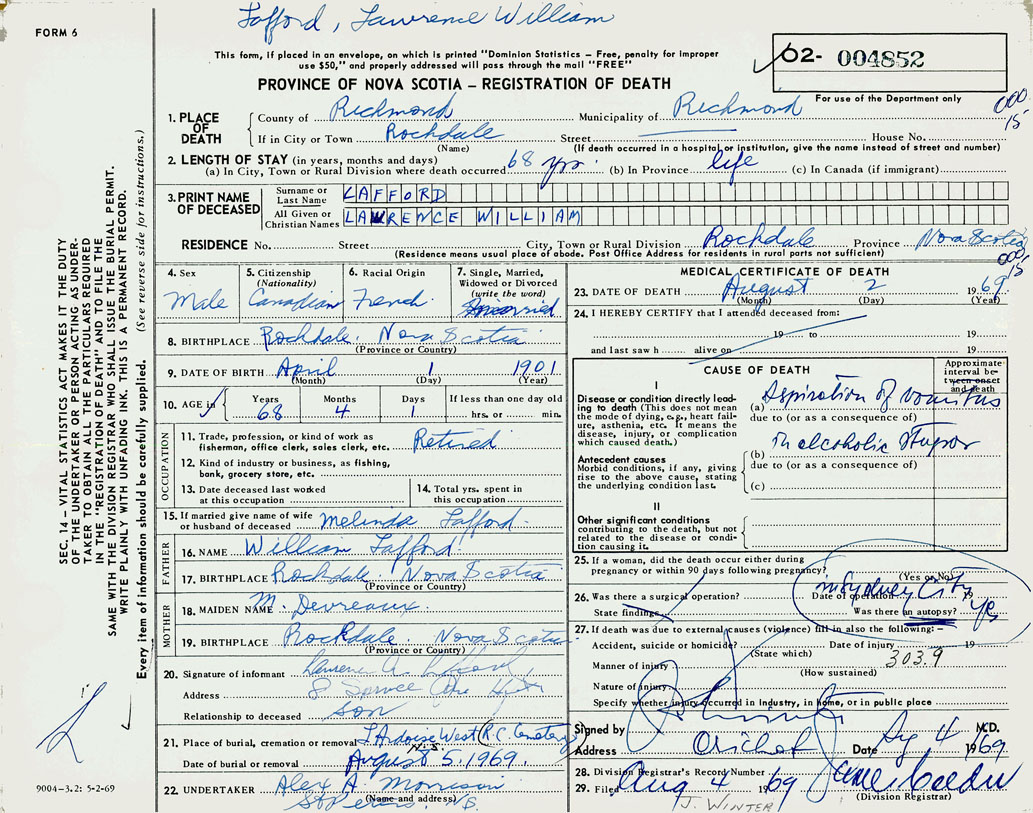 Lafford, Lawrence William
FORM 6
This form, if placed in an envelope, on which is printed "Dominion Statistics — Free, penalty for improper
use $50," and properly addressed will pass through the mail "FREE"
62- 004852
For use of the Department only
PROVINCE OF NOVA SCOTIA — REGISTRATION OF DEATH
000
15
1. PLACE OF DEATH
County of Richmond Municipality of Richmond
If in City or Town Rockdale Street House No.
(Name) (If death occurred in a hospital or institution, give the name instead of street and number)
2. LENGTH OF STAY (in years, months and days)
(a) In City, Town or Rural Division where death occurred 68 yrs. (b) In Province life (c) In Canada (if immigrant)
3. PRINT NAME OF DECEASED
Surname or Last Name LAFFORD
All Given or Christian Names LAWRENCE WILLIAM
RESIDENCE No. Street City, Town or Rural Division Rockdale Province Nova Scotia
(Residence means usual place of abode. Post Office Address for residents in rural parts not sufficient)
000
15
4. Sex
Male
5. Citizenship
(Nationality)
Canadian
6. Racial Origin
French
7. Single, Married,
Widowed or Divorced
(write the word)
married
8. BIRTHPLACE Rockdale, Nova Scotia
(Province or Country)
9. DATE OF BIRTH April 1 1901
(Month) (Day) (Year)
10. AGE in
Years Months Days If less than one day old
68 4 1 hrs. or min.
OCCUPATION
11. Trade, profession or kind of work as
fisherman, office clerk, sales clerk, etc. Retired
12. Kind of industry or business, as fishing,
bank, grocery store, etc.
13. Date deceased last worked
at this occupation
14. Total yrs. spent in
this occupation
15. If married give name of wife
or husband of deceased Melinda Lafford
FATHER
16. NAME William Lafford
17. BIRTHPLACE Rockdale, Nova Scotia
(Province or Country)
MOTHER
18. MAIDEN NAME M. Devreaux
19. BIRTHPLACE Rockdale, Nova Scotia
(Province or Country)
20. Signature of informant
Address 8 Spruce
Relationship to deceased son
21. Place of burial, cremation or removal L'Ardoise West (R.C. Cemetery)
N.S.
Date of burial or removal August 5, 1969.
22. UNDERTAKER Alex A. Morrison
(Name and address)
St Peters, N.S.
MEDICAL CERTIFICATE OF DEATH
23. DATE OF DEATH August 2 1969
(Month) (Day) (Year)
24. I HEREBY CERTIFY that I attended deceased from:
19 to 19
and last saw h alive on 19
CAUSE OF DEATH
Approximate
interval be-
tween onset
and death
I
Disease or condition directly lead-
ing to death (This does not mean
the mode of dying, e.g., heart fail-
ure, asthenia, etc. It means the
disease, injury, or complication
which caused death.)
(a) Aspiration of vomitus
due to (or as a consequence of)
In alcoholic stupor
Antecedent causes
Morbid conditions, if any, giving
rise to the above cause, stating
the underlying condition last.
(b)
due to (or as a consequence of)
(c)
II
Other significant conditions
contributing to the death, but not
related to the disease or condi-
tion causing it.
25. If a woman, did the death occur either during
pregnancy or within 90 days following pregnancy?
(Yes or No)
in Sydney City
26. Was there a surgical operation? Date of operation 19
State findings Was there an autopsy? Yes
27. If death was due to external causes (violence) fill in also the following:—
Accident, suicide or homicide? Date of injury 19
(State which)
303.9
Manner of injury
(How sustained)
Nature of injury
Specify whether injury occurred in Industry, in Home, or in public place
Signed by M.D.
Address Arichat Date Aug 4 1969
28. Division Registrar's Record Number
29. Filed Aug 4 1969
(Division Registrar)
J. WINTER
SEC. 14 — VITAL STATISTICS ACT MAKES IT THE DUTY
OF THE UNDERTAKER OR PERSON ACTING AS UNDER-
TAKER TO OBTAIN ALL THE PARTICULARS REQUIRED
IN THE "REGISTRATION OF DEATH" AND TO FILE THE
SAME WITH THE DIVISION REGISTRAR WHO SHALL ISSUE THE BURIAL PERMIT.
WRITE PLAINLY WITH UNFADING INK. THIS IS A PERMANENT RECORD.
Every item of information should be carefully supplied. (See reverse side for instructions.)
9004-3.2: 5-2-69